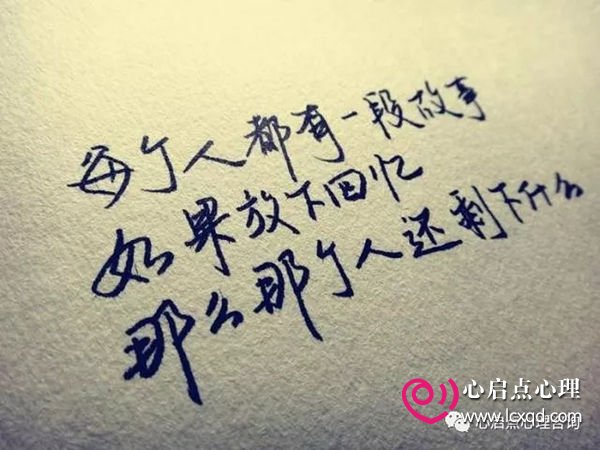 每个人都有一段故事
如果放下回忆
那么那个人还剩下什么
心启点心理
www.lcxqd.com
心启点心理咨询